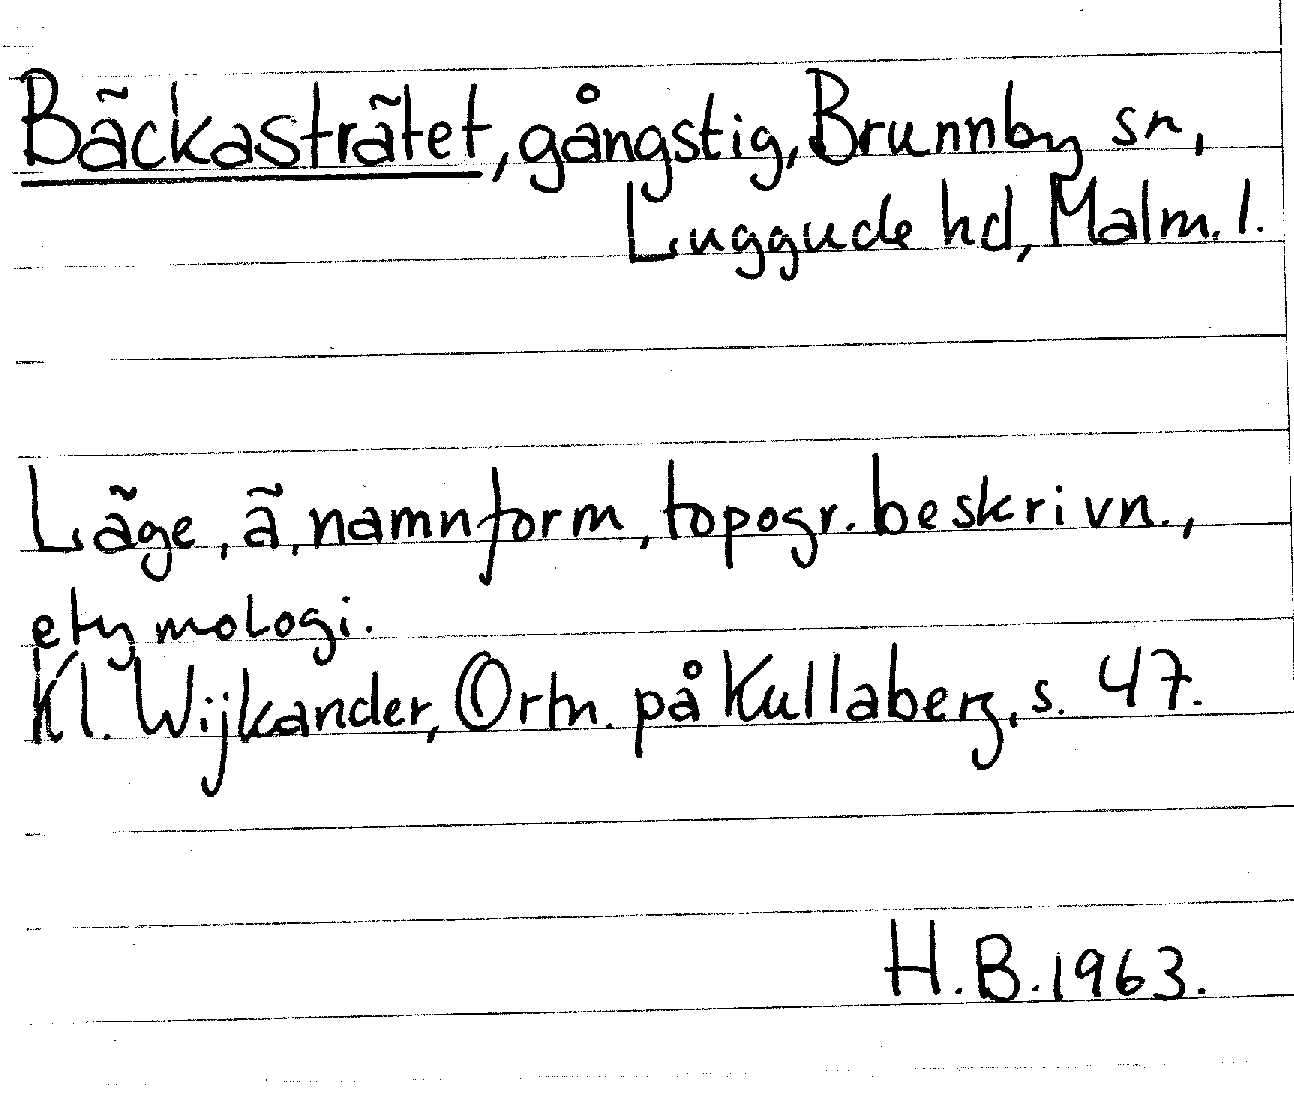 Bäckasträtet, gångstig, Brunnby sn,
Luggude hd, Malm. l.
Läge, ä, namnform, topogr. beskrivn.,
etymologi.
Kl. Wijkander, Ortn. på Kullaberg, s. 47.
H.B. 1963.